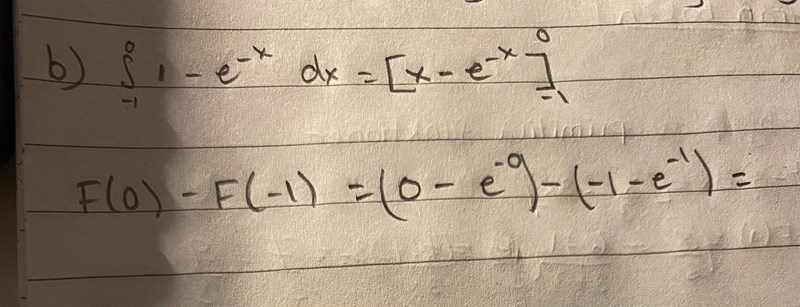 b) ∫₋₁⁰ 1 - e⁻ˣ dx = [x - e⁻ˣ]₋₁⁰
F(0) - F(-1) = (0 - e⁻⁰) - (-1 - e⁻¹) =